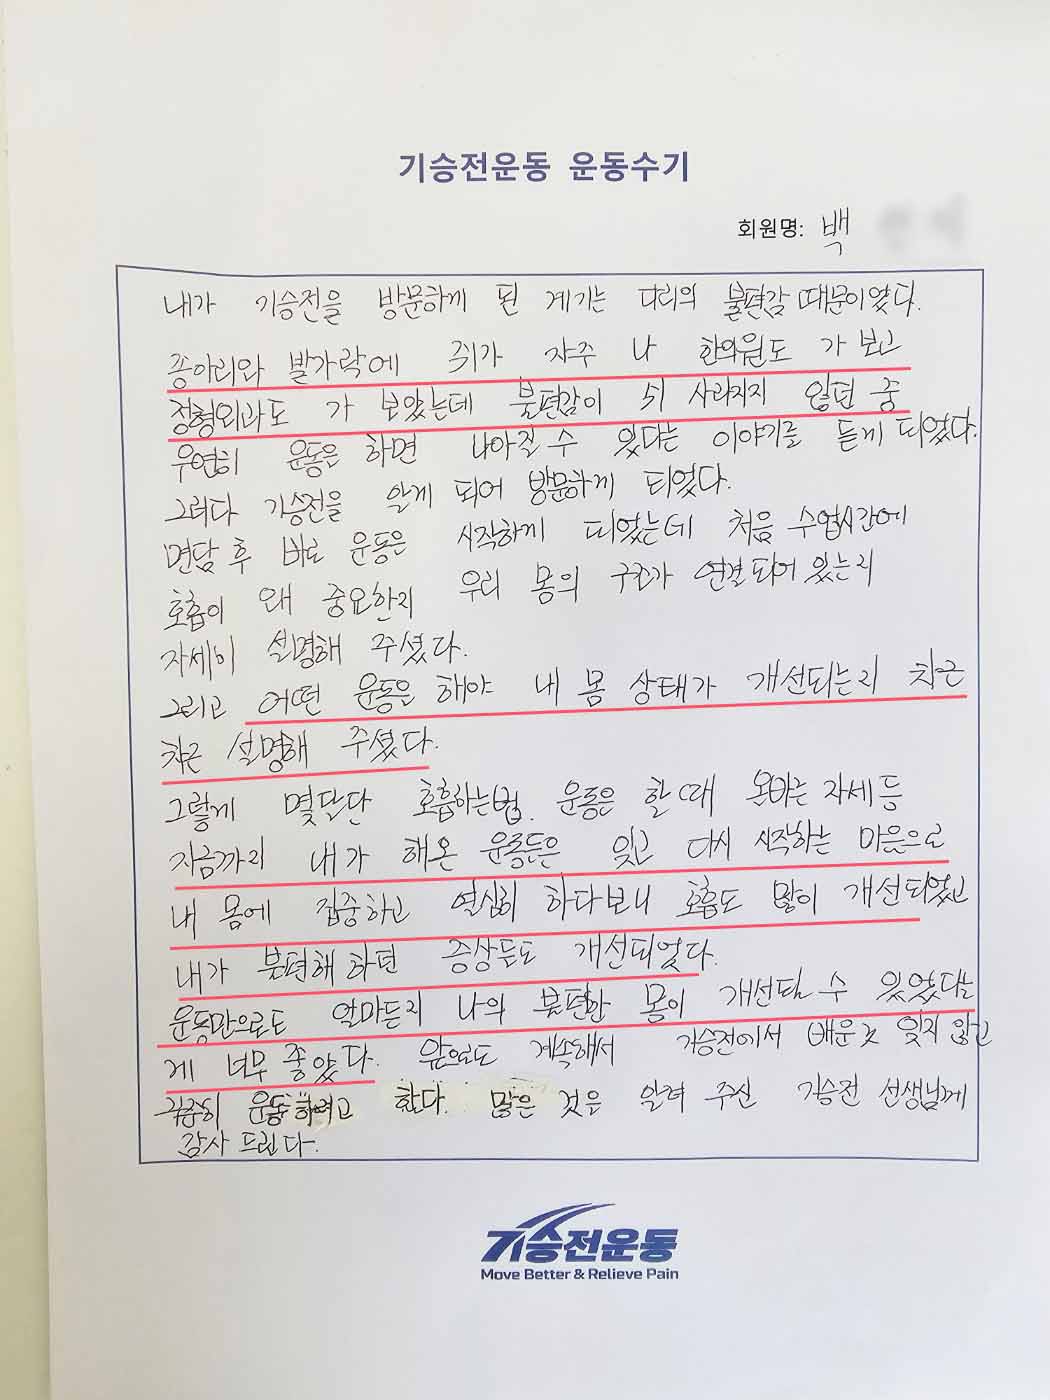 기승전운동 운동수기
회원명: 백
내가 기승전을 방문하게 된 계기는 다리의 불편감 때문이었다.
종아리와 발가락에 쥐가 자주 나 한의원도 가 보고
정형외과도 가 보았는데 불편감이 쉬 사라지지 않던 중
우연히 운동은 하면 나아질 수 있다는 이야기를 듣게 되었다.
그러다 기승전을 알게 되어 방문하게 되었다.
면담 후 바로 운동은 시작하게 되었는데 처음 수업시간에
호흡이 왜 중요한지 우리 몸의 구조가 연결되어 있는지
자세히 설명해 주셨다.
그리고 어떤 운동은 해야 내 몸 상태가 개선되는지 차근
차근 설명해 주셨다.
그렇게 몇달단 호흡하는법, 운동은 할 때 올바른 자세 등
지금까지 내가 해온 운동들은 잊고 다시 시작하는 마음으로
내 몸에 집중하고 열심히 하다보니 호흡도 많이 개선되었고
내가 불편해 하던 증상들도 개선되었다.
운동만으로도 얼마든지 나의 불편한 몸이 개선될 수 있었다는
게 너무 좋았다. 앞으로도 계속해서 기승전에서 배운 것 잊지 않고
꾸준히 운동하려고 한다. 많은 것은 알려 주신 기승전 선생님께
감사 드린다.
기승전운동
Move Better & Relieve Pain